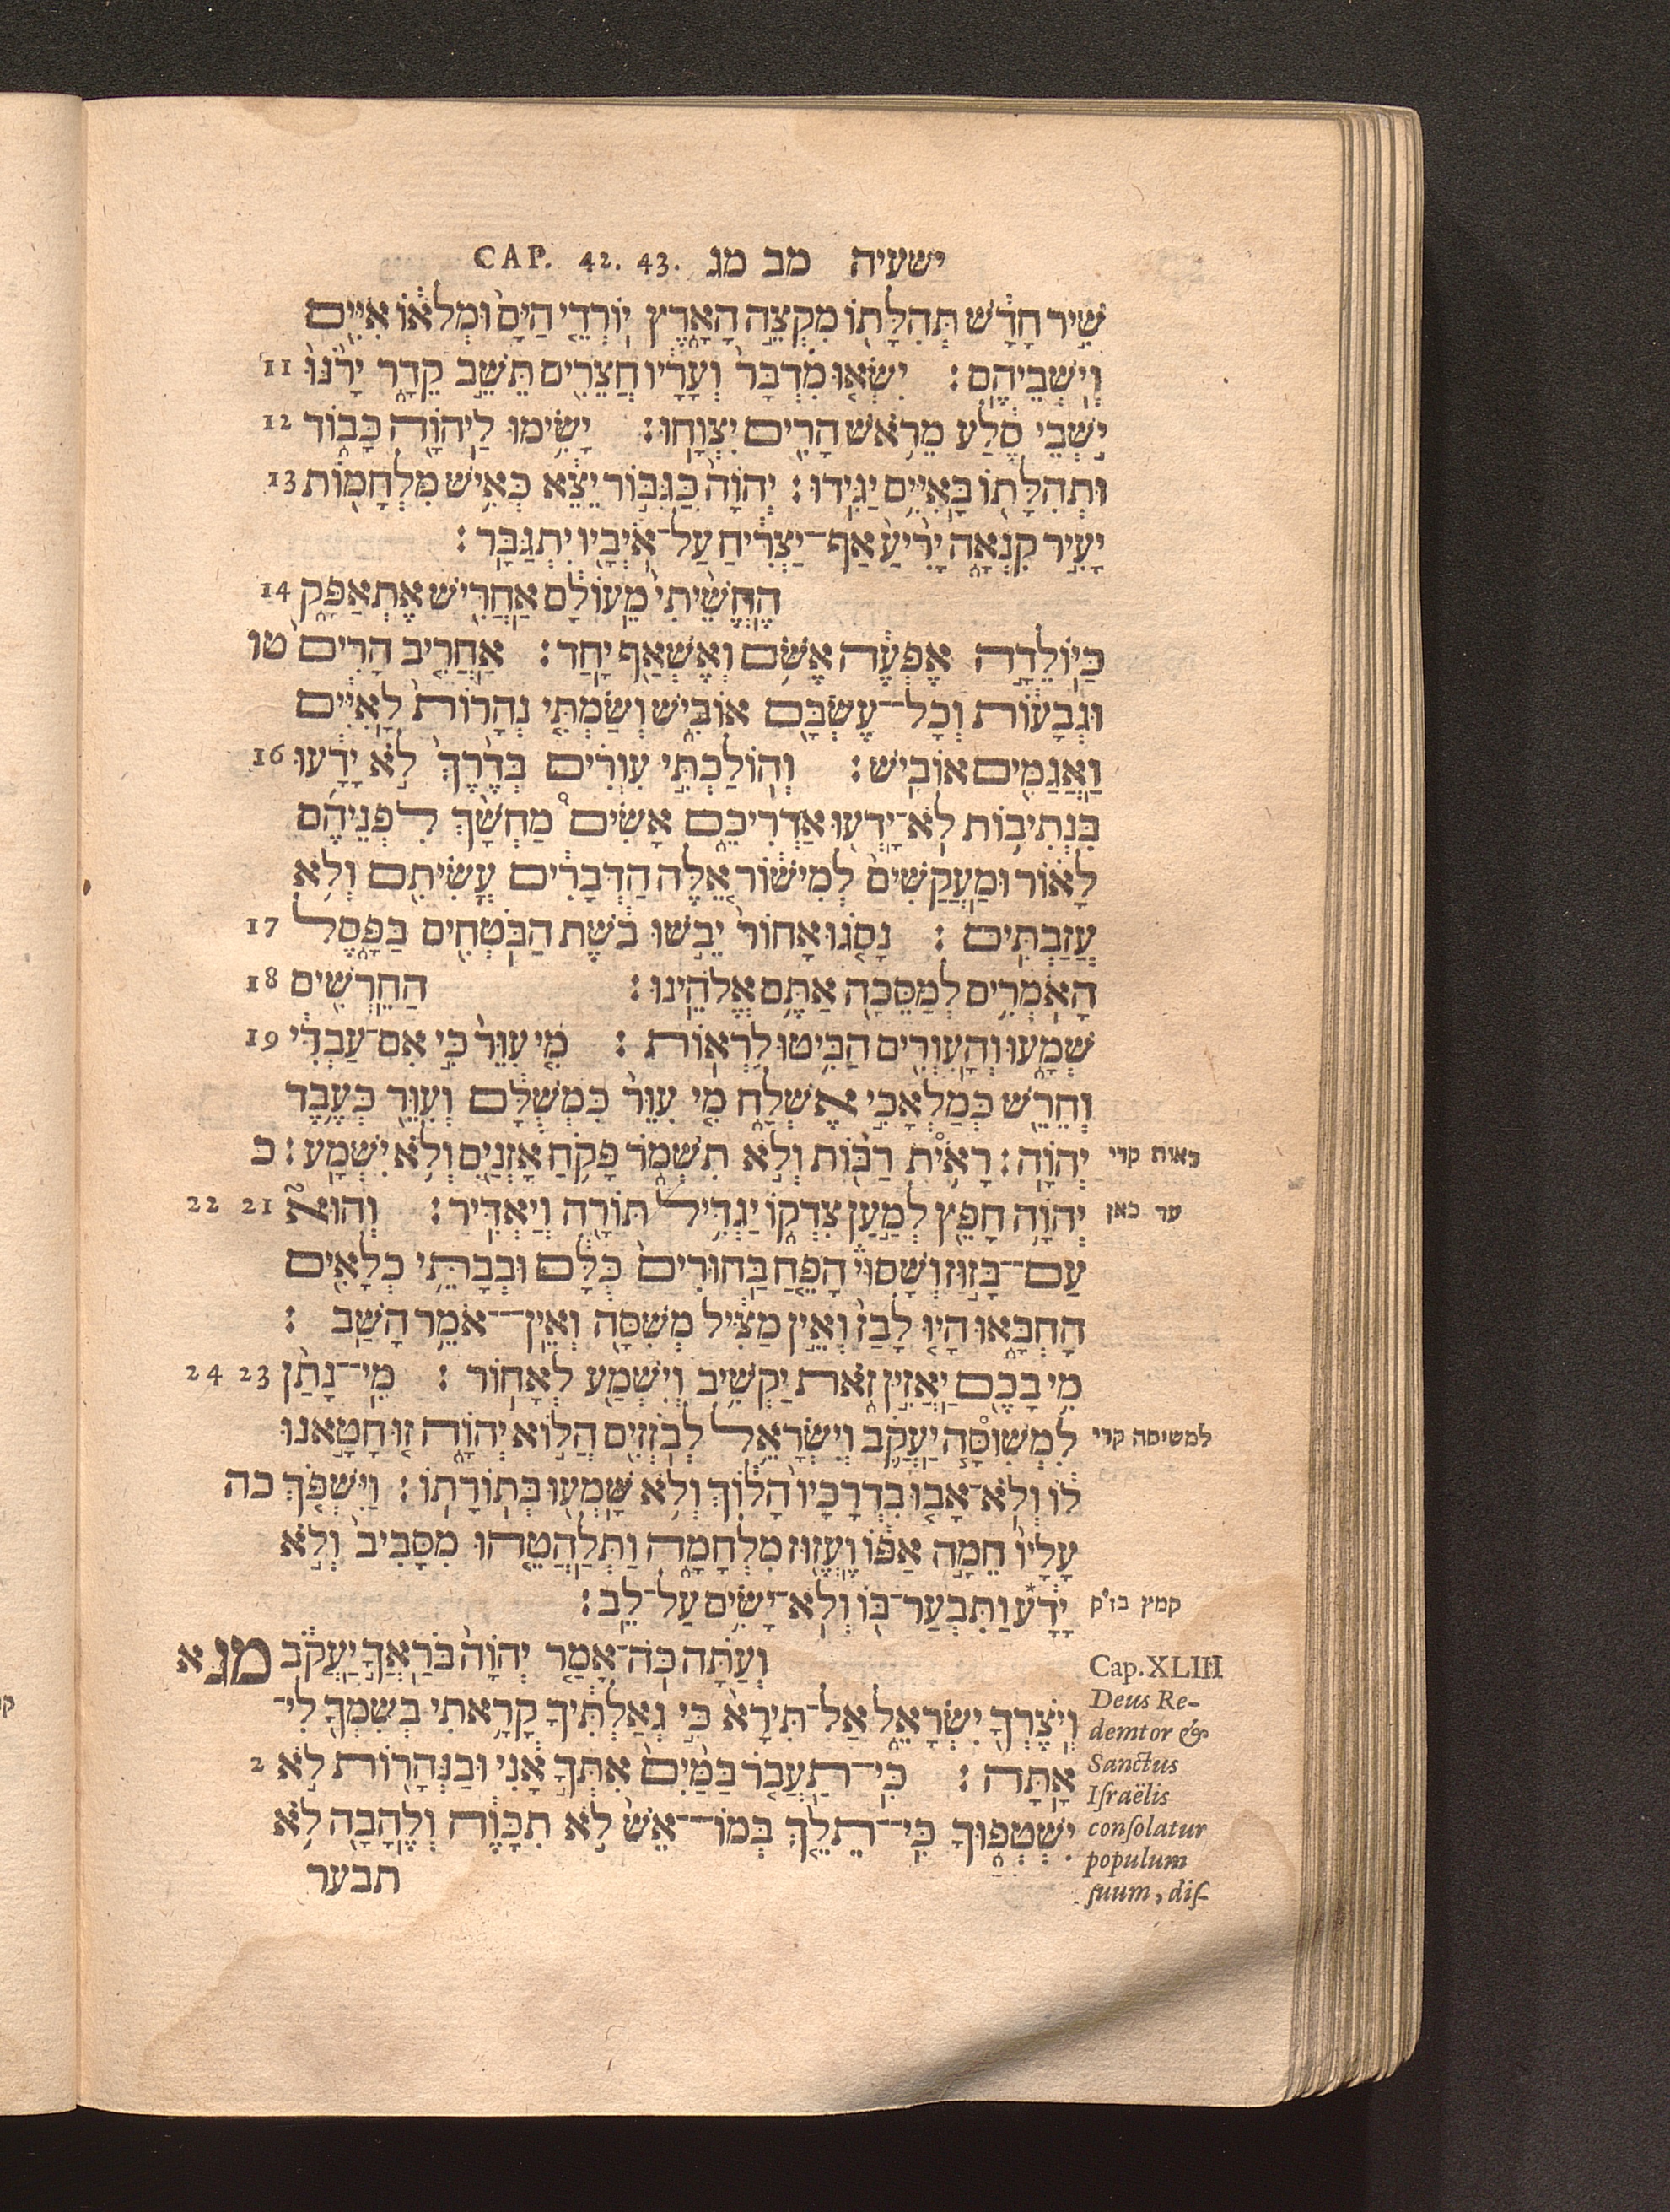 ישעיה מב מג CAP. 42. 43.
שִׁ֣יר חָדָ֔שׁ תְּהִלָּת֖וֹ מִקְצֵ֣ה הָאָ֑רֶץ יוֹרְדֵ֤י הַיָּם֙ וּמְלֹא֔וֹ אִיִּ֖ים
וְיֹשְׁבֵיהֶֽם׃ יִשְׂא֤וּ מִדְבָּר֙ וְעָרָ֔יו חֲצֵרִ֖ים תֵּשֵׁ֣ב קֵדָ֑ר יָרֹ֙נּוּ֙ 11
יֹ֣שְׁבֵי סֶ֔לַע מֵרֹ֥אשׁ הָרִ֖ים יִצְוָֽחוּ׃ יָשִׂ֥ימוּ לַֽיהוָ֖ה כָּב֑וֹד 12
וּתְהִלָּת֖וֹ בָּאִיִּ֥ים יַגִּֽידוּ׃ יְהוָה֙ כַּגִּבּ֣וֹר יֵצֵ֔א כְּאִ֥ישׁ מִלְחָמ֖וֹת 13
יָעִ֣יר קִנְאָ֑ה יָרִ֙יעַ֙ אַף־יַצְרִ֔יחַ עַל־אֹיְבָ֖יו יִתְגַּבָּֽר׃
הֶחֱשֵׁ֙יתִי֙ מֵֽעוֹלָ֔ם אַחֲרִ֖ישׁ אֶתְאַפָּ֑ק 14
כַּיּוֹלֵדָ֣ה אֶפְעֶ֔ה אֶשֹּׁ֥ם וְאֶשְׁאַ֖ף יָֽחַד׃ אַחֲרִ֤יב הָרִים֙ טו
וּגְבָע֔וֹת וְכָל־־עֶשְׂבָּ֖ם אוֹבִ֑ישׁ וְשַׂמְתִּ֤י נְהָרוֹת֙ לָֽאִיִּ֔ים
וַאֲגַמִּ֖ים אוֹבִֽישׁ׃ וְהוֹלַכְתִּ֣י עִוְרִ֗ים בְּדֶ֙רֶךְ֙ לֹ֣א יָדָ֔עוּ 16
בִּנְתִיב֥וֹת לֹֽא־יָדְע֖וּ אַדְרִיכֵ֑ם אָשִׂים֩ מַחְשָׁ֨ךְ לִפְנֵיהֶ֜ם
לָא֗וֹר וּמַֽעֲקַשִּׁים֙ לְמִישׁ֔וֹר אֵ֚לֶּה הַדְּבָרִ֔ים עֲשִׂיתִ֖ם וְלֹ֥א
עֲזַבְתִּֽים׃ נָסֹ֤גוּ אָחוֹר֙ יֵבֹ֣שׁוּ בֹ֔שֶׁת הַבֹּטְחִ֖ים בַּפָּ֑סֶל 17
הָאֹמְרִ֥ים לְמַסֵּכָ֖ה אַתֶּ֥ם אֱלֹהֵֽינוּ׃ הַחֵרְשִׁ֖ים 18
שְׁמָ֑עוּ וְהַעִוְרִ֖ים הַבִּ֥יטוּ לִרְאֽוֹת׃ מִ֤י עִוֵּר֙ כִּ֣י אִם־עַבְדִּ֔י 19
וְחֵרֵ֖שׁ כְּמַלְאָכִ֣י אֶשְׁלָ֑ח מִ֤י עִוֵּר֙ כִּמְשֻׁלָּ֔ם וְעִוֵּ֖ר כְּעֶ֥בֶד
יְהוָֽה׃ רָאִ֥ית רַבּ֖וֹת וְלֹ֣א תִשְׁמֹ֑ר פָּק֥חַ אָזְנַ֖יִם וְלֹ֥א יִשְׁמָֽע׃ כ
ראות קרי
יְהוָ֥ה חָפֵ֖ץ לְמַ֣עַן צִדְק֑וֹ יַגְדִּ֥יל תּוֹרָ֖ה וְיַאְדִּֽיר׃ וְהוּא֮ 21 22
עד כאן
עַם־־בָּז֣וּז וְשָׁסוּי֒ הָפֵ֤חַ בַּֽחוּרִים֙ כֻּלָּ֔ם וּבְבָתֵּ֥י כְלָאִ֖ים
הָחְבָּ֑אוּ הָי֤וּ לָבַז֙ וְאֵ֣ין מַצִּ֔יל מְשִׁסָּ֖ה וְאֵין־־אֹמֵ֥ר הָשַֽׁב׃
מִ֥י בָכֶ֖ם יַאֲזִ֣ין זֹ֑את יַקְשִׁ֥ב וְיִשְׁמַ֖ע לְאָחֽוֹר׃ מִֽי־־נָתַ֨ן 23 24
לִמְשׁוֹסָּ֧ה יַעֲקֹ֛ב וְיִשְׂרָאֵ֥ל לְבֹזְזִ֖ים הֲל֣וֹא יְהוָ֑ה ז֚וּ חָטָ֣אנוּ
למשיסה קרי
ל֔וֹ וְלֹֽא־אָב֤וּ בִדְרָכָיו֙ הָל֔וֹךְ וְלֹ֥א שָׁמְע֖וּ בְּתוֹרָתֽוֹ׃ וַיִּשְׁפֹּ֤ךְ כה
עָלָיו֙ חֵמָ֣ה אַפּ֔וֹ וֶעֱז֖וּז מִלְחָמָ֑ה וַתְּלַהֲטֵ֤הוּ מִסָּבִיב֙ וְלֹ֣א
יָדָ֔ע וַתִּבְעַר־בּ֖וֹ וְלֹֽא־יָשִׂ֥ים עַל־לֵֽב׃
קמץ בז״ק
וְעַתָּ֞ה כֹּֽה־אָמַ֤ר יְהוָה֙ בֹּרַאֲךָ֣ יַעֲקֹ֔ב מג א
וְיֹצֶרְךָ֖ יִשְׂרָאֵ֑ל אַל־תִּירָא֙ כִּ֣י גְאַלְתִּ֔יךָ קָרָ֥אתִי בְשִׁמְךָ֖ לִי־
אָֽתָּה׃ כִּֽי־תַעֲבֹ֤ר בַּמַּ֙יִם֙ אִתְּךָ֣ אָ֔נִי וּבַנְּהָר֖וֹת לֹ֣א 2
יִשְׁטְפ֑וּךָ כִּֽי־־תֵלֵ֤ךְ בְּמוֹ־־אֵשׁ֙ לֹ֣א תִכָּוֶ֔ה וְלֶהָבָ֖ה לֹ֥א
תבער
Cap. XLIII
Deus Re-
demtor &
Sanctus
Iſraëlis
conſolatur
populum
ſuum, diſ-